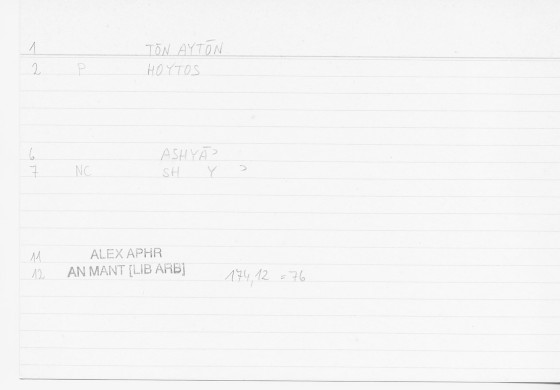 1 TŌN AYTŌN
2 P HOYTOS
6 ASHYĀʾ
7 NC SH Y ʾ
11 ALEX APHR
12 AN MANT [LIB ARB] 174,12 = 76